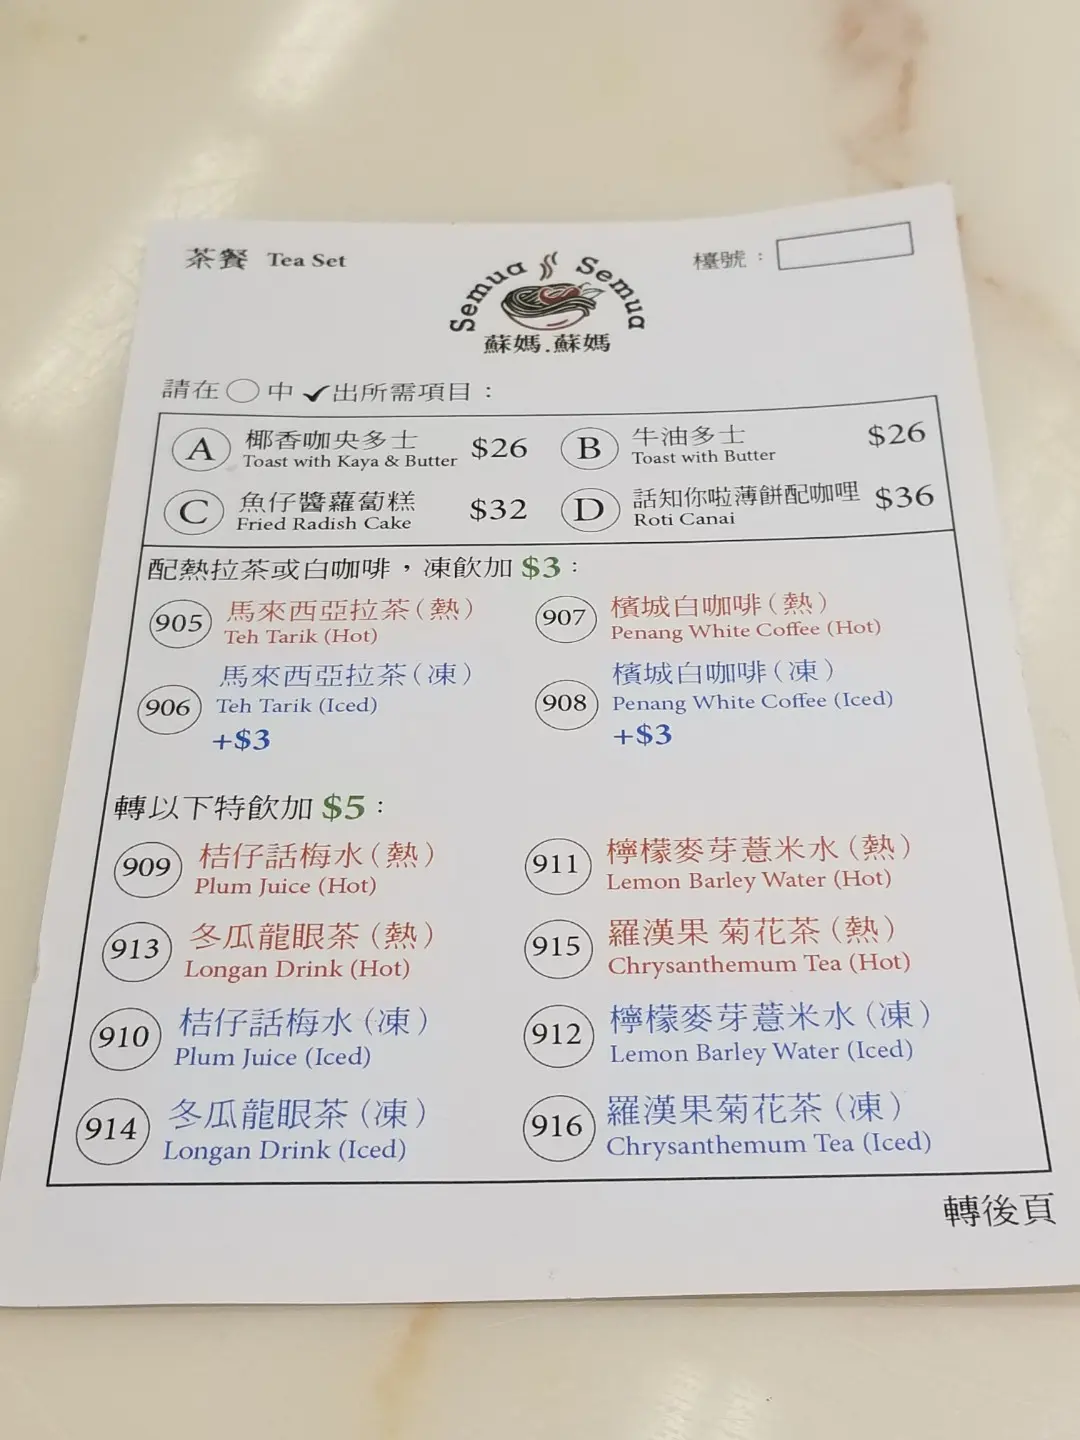 茶餐 Tea Set
檯號：
Semua Semua
蘇媽.蘇媽
請在◯中✓出所需項目：
A 椰香咖央多士 $26
Toast with Kaya & Butter
B 牛油多士 $26
Toast with Butter
C 魚仔醬蘿蔔糕 $32
Fried Radish Cake
D 話知你啦薄餅配咖哩 $36
Roti Canai
配熱拉茶或白咖啡，凍飲加 $3：
905 馬來西亞拉茶（熱）
Teh Tarik (Hot)
907 檳城白咖啡（熱）
Penang White Coffee (Hot)
906 馬來西亞拉茶（凍）
Teh Tarik (Iced)
+$3
908 檳城白咖啡（凍）
Penang White Coffee (Iced)
+$3
轉以下特飲加 $5：
909 桔仔話梅水（熱）
Plum Juice (Hot)
911 檸檬麥芽薏米水（熱）
Lemon Barley Water (Hot)
913 冬瓜龍眼茶（熱）
Longan Drink (Hot)
915 羅漢果 菊花茶（熱）
Chrysanthemum Tea (Hot)
910 桔仔話梅水（凍）
Plum Juice (Iced)
912 檸檬麥芽薏米水（凍）
Lemon Barley Water (Iced)
914 冬瓜龍眼茶（凍）
Longan Drink (Iced)
916 羅漢果菊花茶（凍）
Chrysanthemum Tea (Iced)
轉後頁